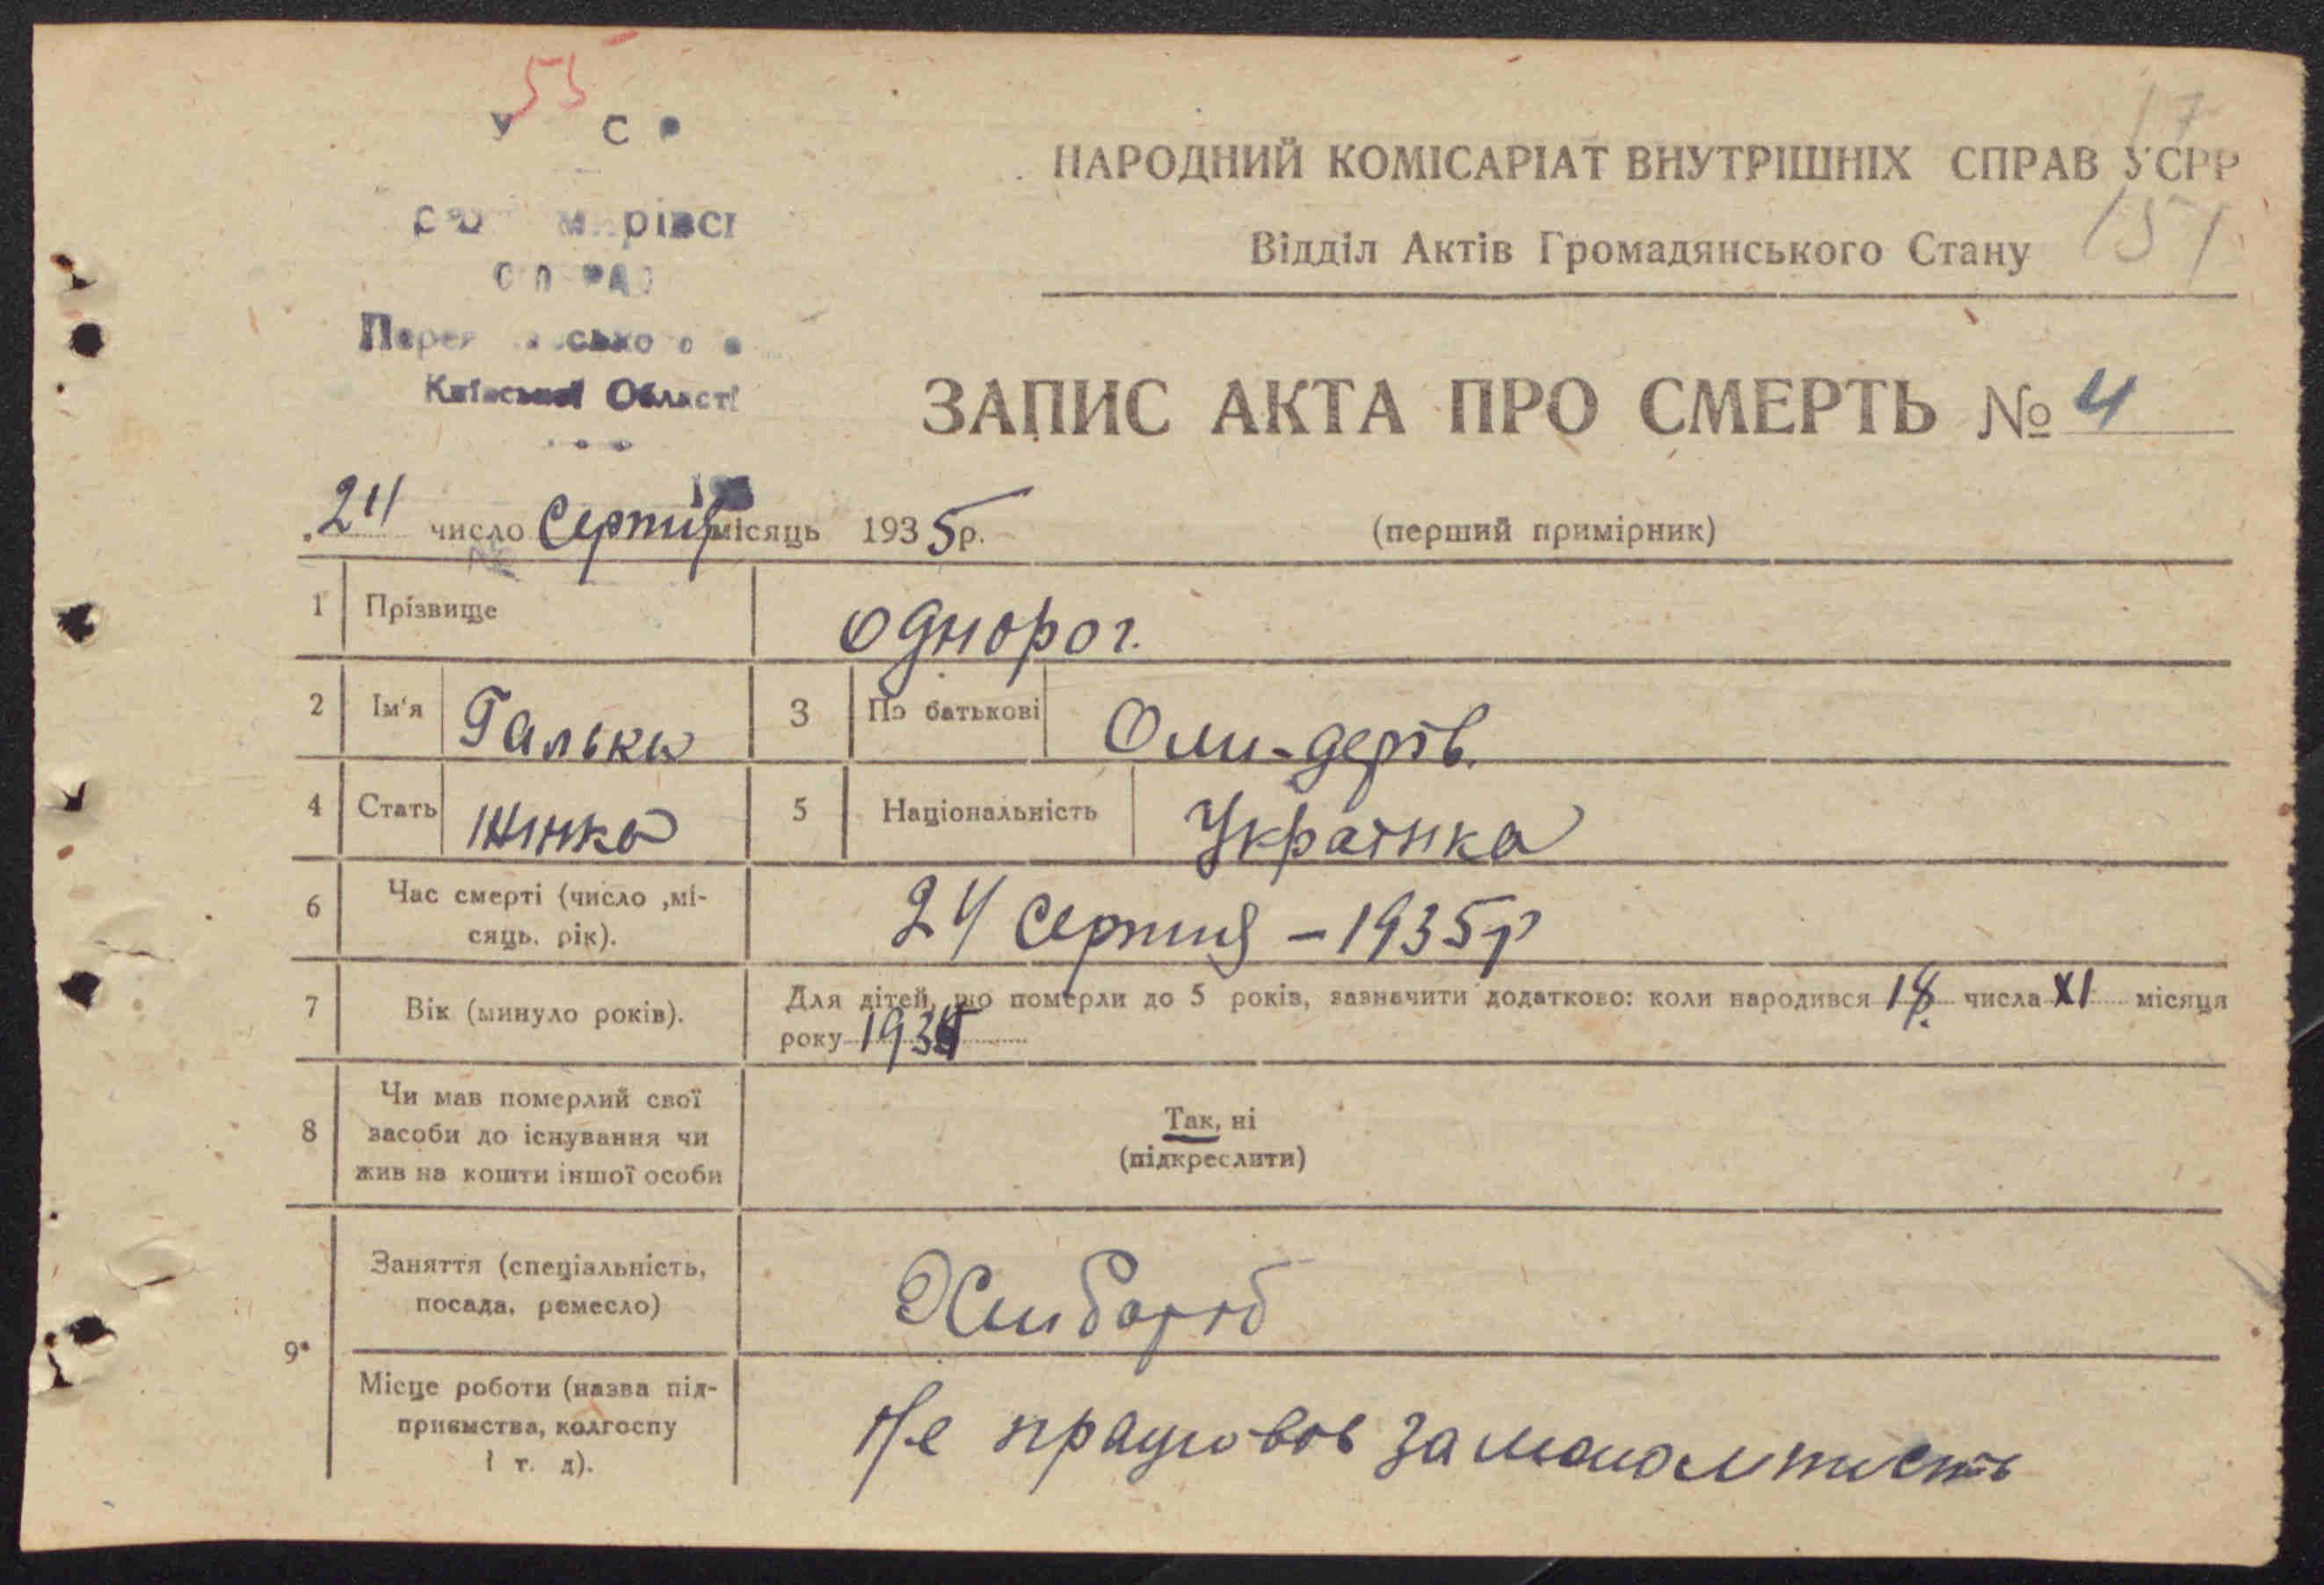 55
17
НАРОДНИЙ КОМІСАРІАТ ВНУТРІШНІХ СПРАВ УСРР
Відділ Актів Громадянського Стану
151
Київської Області
ЗАПИС АКТА ПРО СМЕРТЬ № 4
24 число Серпня місяць 1935 р.
(перший примірник)
1 Прізвище Однорог.
2 Ім'я Галька 3 По батькові
4 Стать жінка 5 Національність Українка
6 Час смерті (число ,мі-
сяць. рік). 24 Серпня – 1935 р
7 Вік (минуло років). Для дітей, що померли до 5 років, зазначити додатково: коли народився 18 числа XI місяця
року 1934
8 Чи мав померлий свої
засоби до існування чи
жив на кошти іншої особи
Так, ні
(підкреслити)
9*
Заняття (спеціальність,
посада, ремесло) Хлибороб
Місце роботи (назва під-
приємства, колгоспу
і т. д).
Не працював